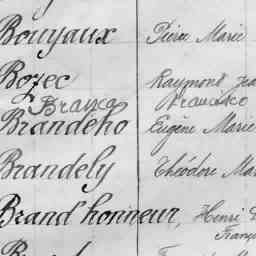 Bouyaux Pierre Marie
Bozec Raymond Jea
Branca Francisco
Brandeho Eugène Marie
Brandely Théodore Ma
Brand'honneur, Henri
Franç